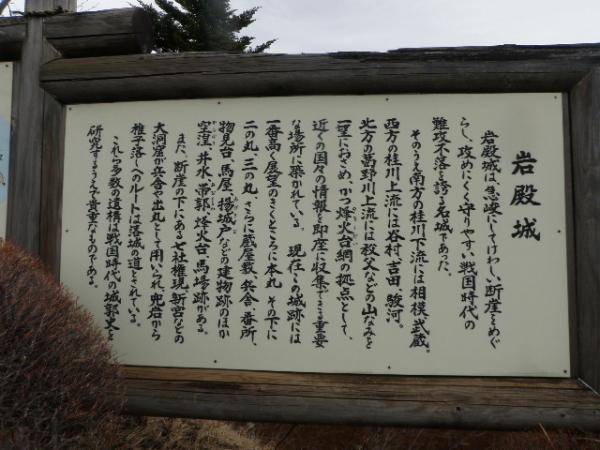 岩殿城
岩殿城は、急峻にしてけわしい断崖をめぐ
らし、攻めにくく守りやすい戦国時代の
難攻不落を誇る名城であった。
そのうえ南方の桂川下流には相模、武蔵。
西方の桂川上流には谷村、吉田、駿河。
北方の葛野川上流には秩父などの山なみを
一望におさめ、かつ烽火台網の拠点として、
近くの国々の情報を即座に収集できる重要
な場所に築かれている。現在この城跡には
一番高く展望のきくところに本丸、その下に
二の丸、三の丸、さらに蔵屋敷、兵舎、番所、
物見台、馬屋、揚城戸などの建物跡のほか
空湟、井水、帯郭、烽火台、馬場跡がある。
また、断崖の下にある七社権現、新宮などの
大洞窟が兵舎や出丸として用いられ、兜岩から
稚子落しへのルートは落城の道とされている。
これら多数の遺構は戦国時代の城郭史を
研究するうえで貴重なものである。